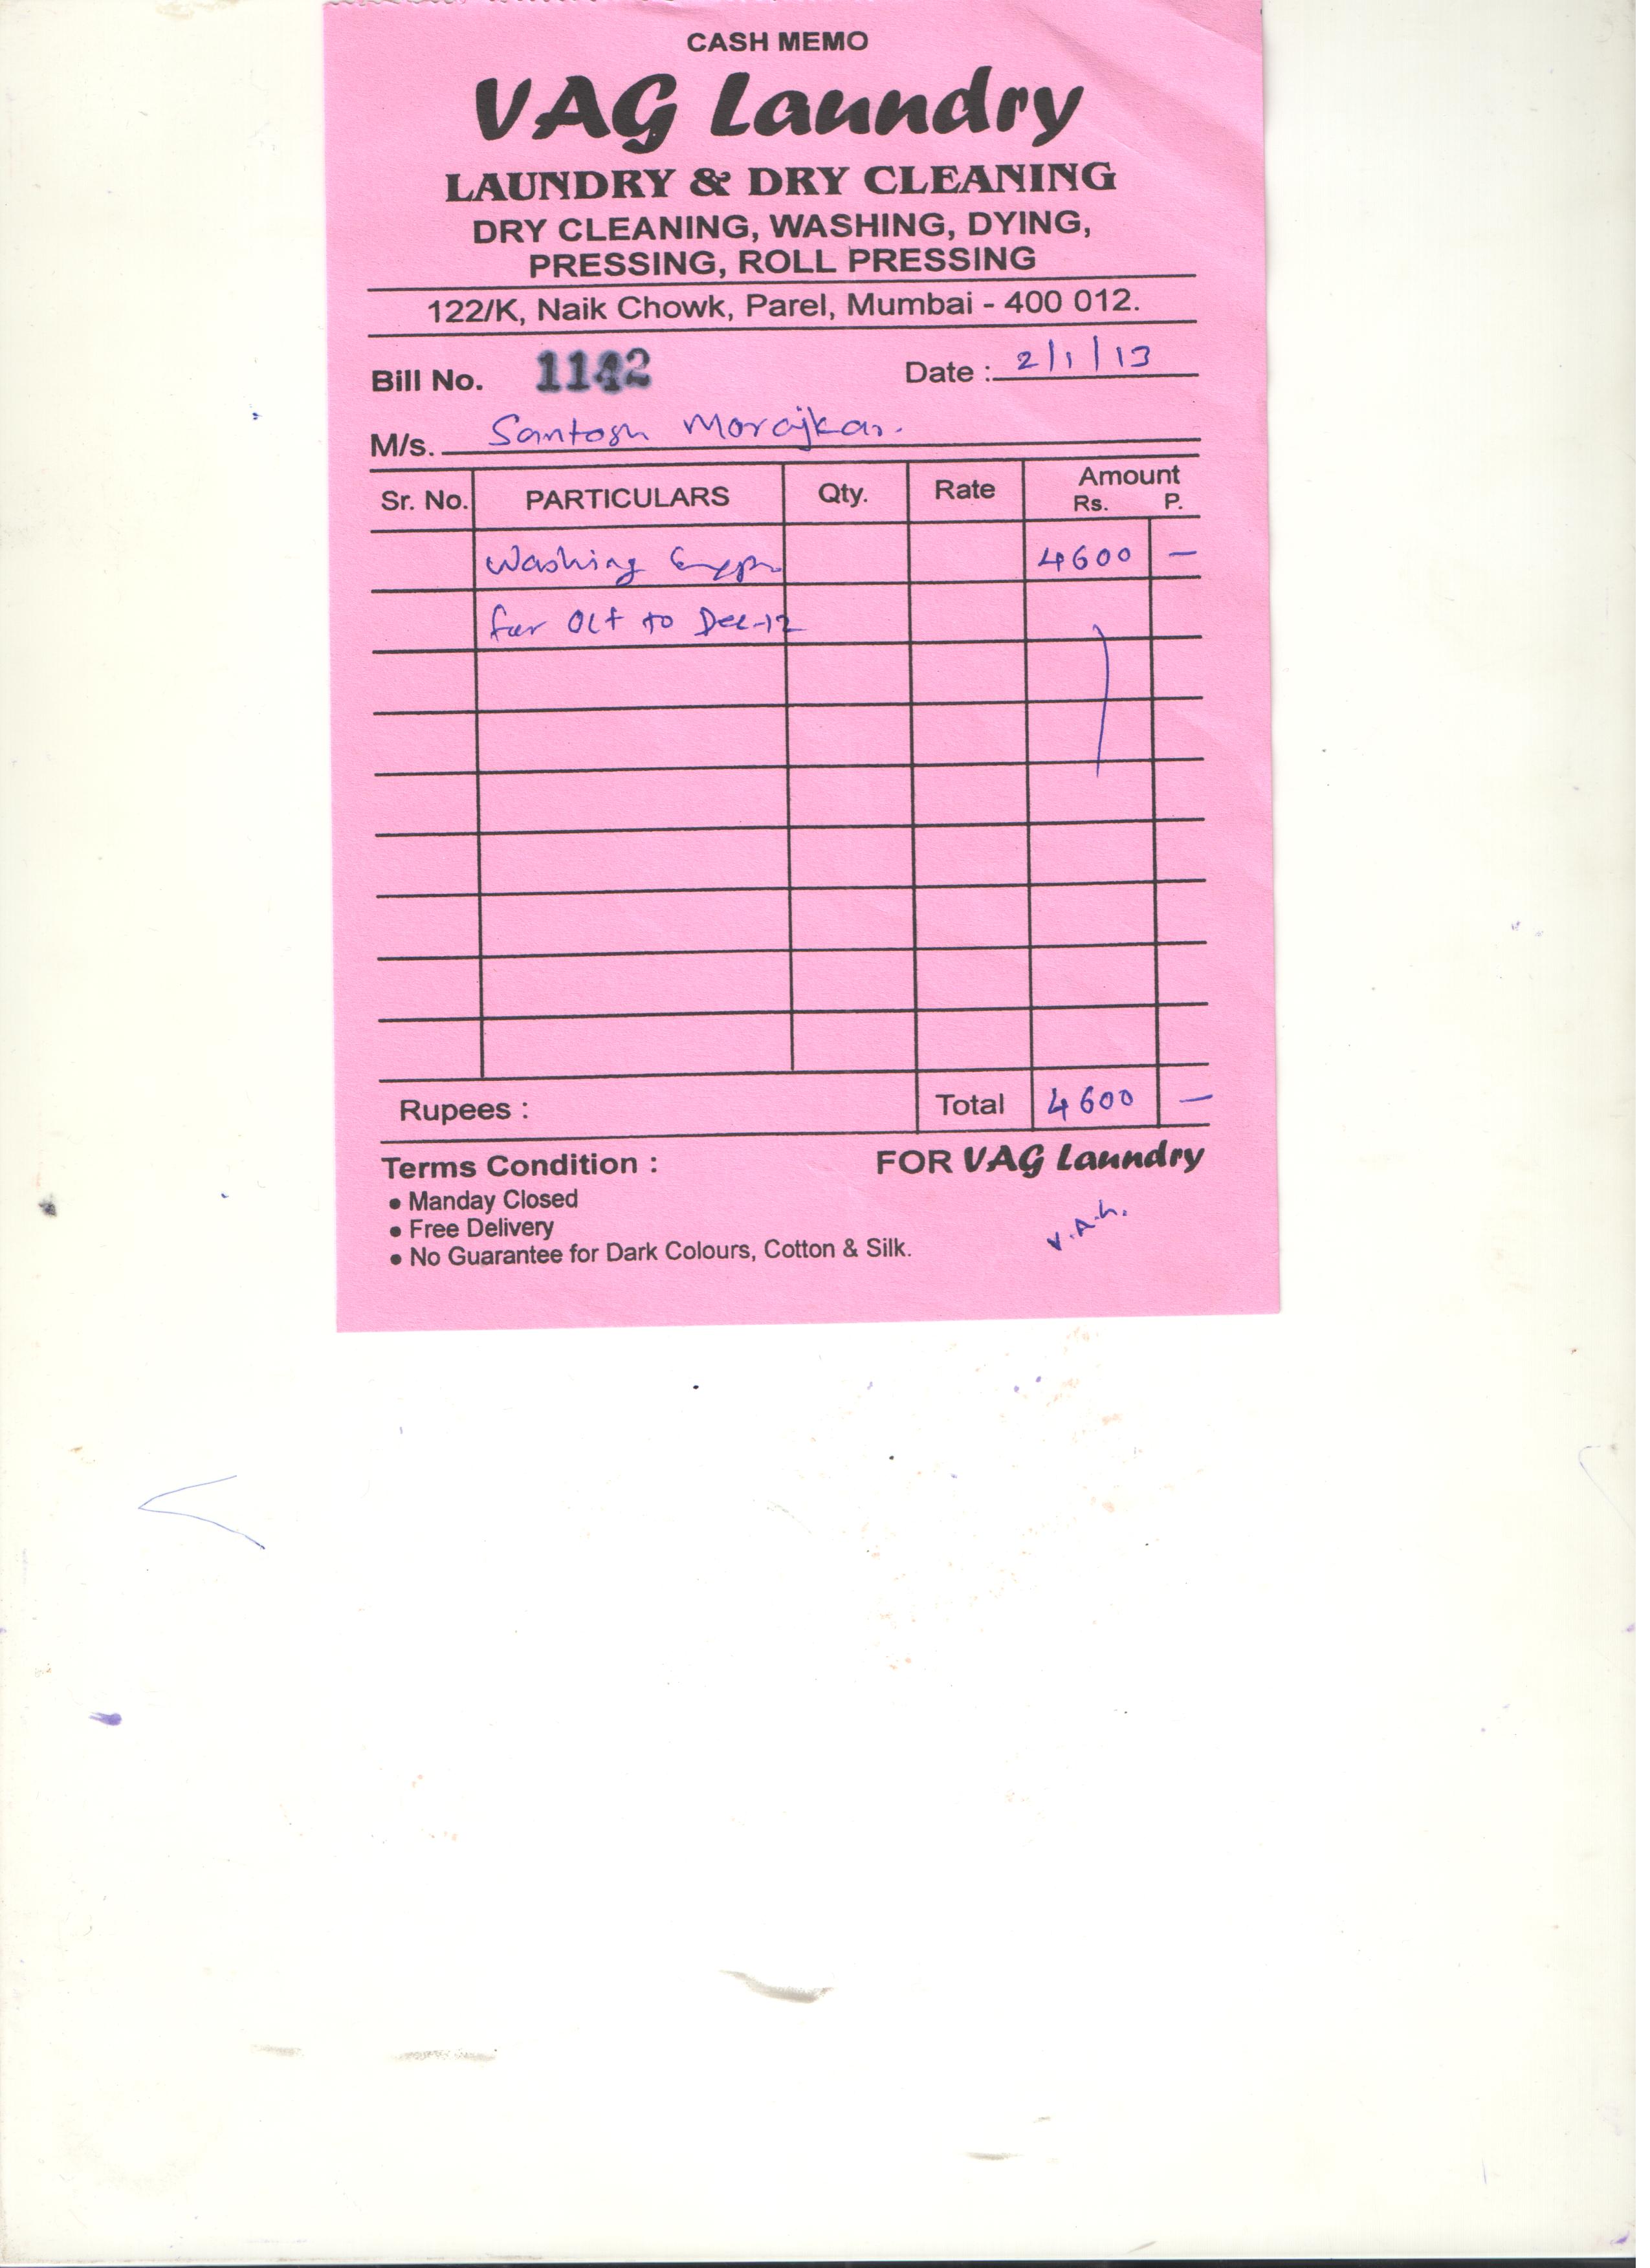 CASH MEMO
VAG Laundry
LAUNDRY & DRY CLEANING
DRY CLEANING, WASHING, DYING,
PRESSING, ROLL PRESSING
122/K, Naik Chowk, Parel, Mumbai - 400 012.
Bill No. 1142 Date : 2/1/13
M/s. Santosh Morajkar.
Sr. No. PARTICULARS Qty. Rate Amount
Rs. P.
Washing 4600 —
for Oct to Dec-12
Rupees : Total 4600 —
Terms Condition : FOR VAG Laundry
• Manday Closed
• Free Delivery
• No Guarantee for Dark Colours, Cotton & Silk.